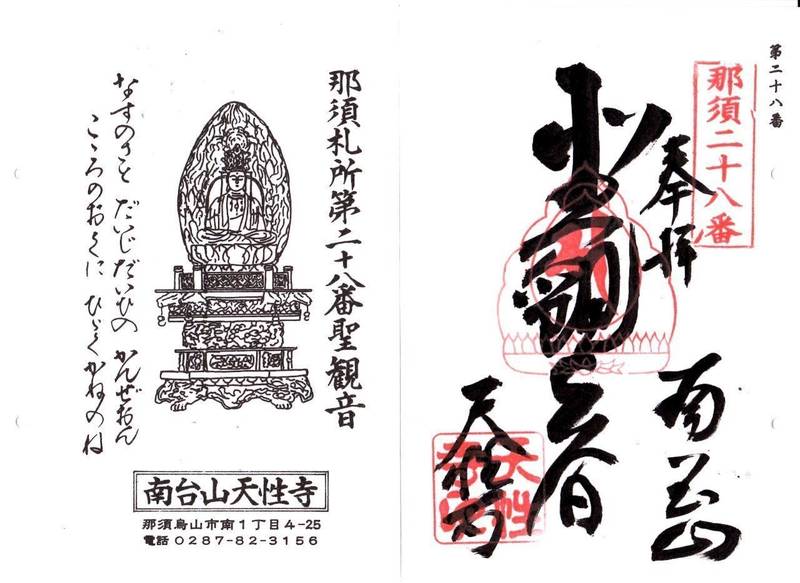 第二十八番
那須二十八番
奉拝
南台山
聖観世音
天性寺
天性
寺印
那須札所第二十八番聖観音
なすのさと だいじだいひの かんぜおん
こころのおくに ひゞくかねのね
南台山天性寺
那須烏山市南1丁目4-25
電話 0287-82-3156